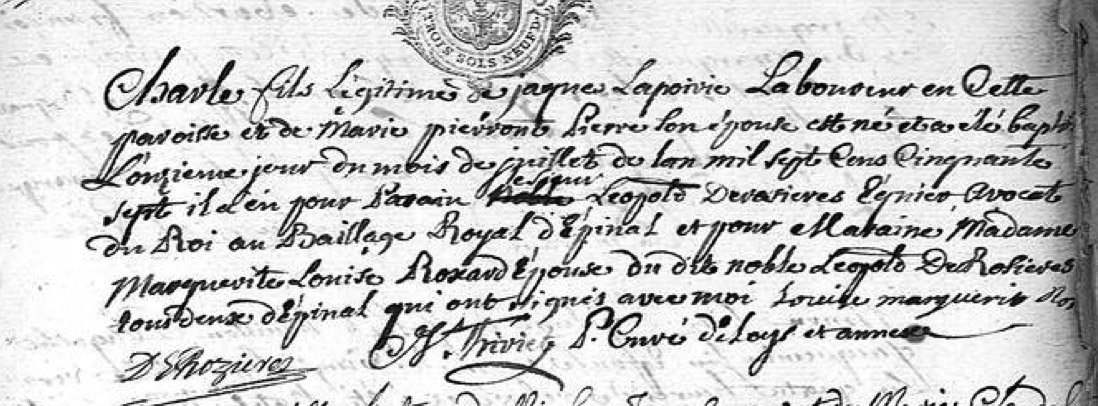 TROIS SOLS NEUF D.
Charle fils Légitime de jaque Lapoirie Laboureur en Cette
paroisse et de Marie pierront Pierre son épouse est né et a été bapt
L'onzieme jour du mois de juillet de lan mil sept Cens Cinquante
sept il a eu pour Parain Leopold Derasieres Ecuier, Avocat
du Roi au Baillage Royal d'Epinal et pour Maraine Madame
Marguerite Louise Roxard Epouse du dit noble Leopold DeRosieres
tous deux d'Epinal qui ont signés avec moi Louise marguerite Ro
P. Curé de Loys et annexe
DeRozieres